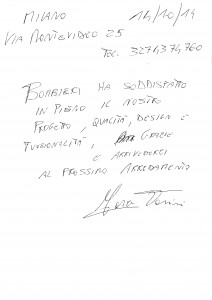 MILANO 14/10/14
VIA MONTEVIDEO 25
TEL. 3274374760
BORBIERI HA SODDISFATTO
IN PIENO IL NOSTRO
PROGETTO, QUALITÀ, DESIGN E
FUNZIONALITÀ, GRAZIE
E ARRIVEDERCI
AL PROSSIMO ARREDAMENTO